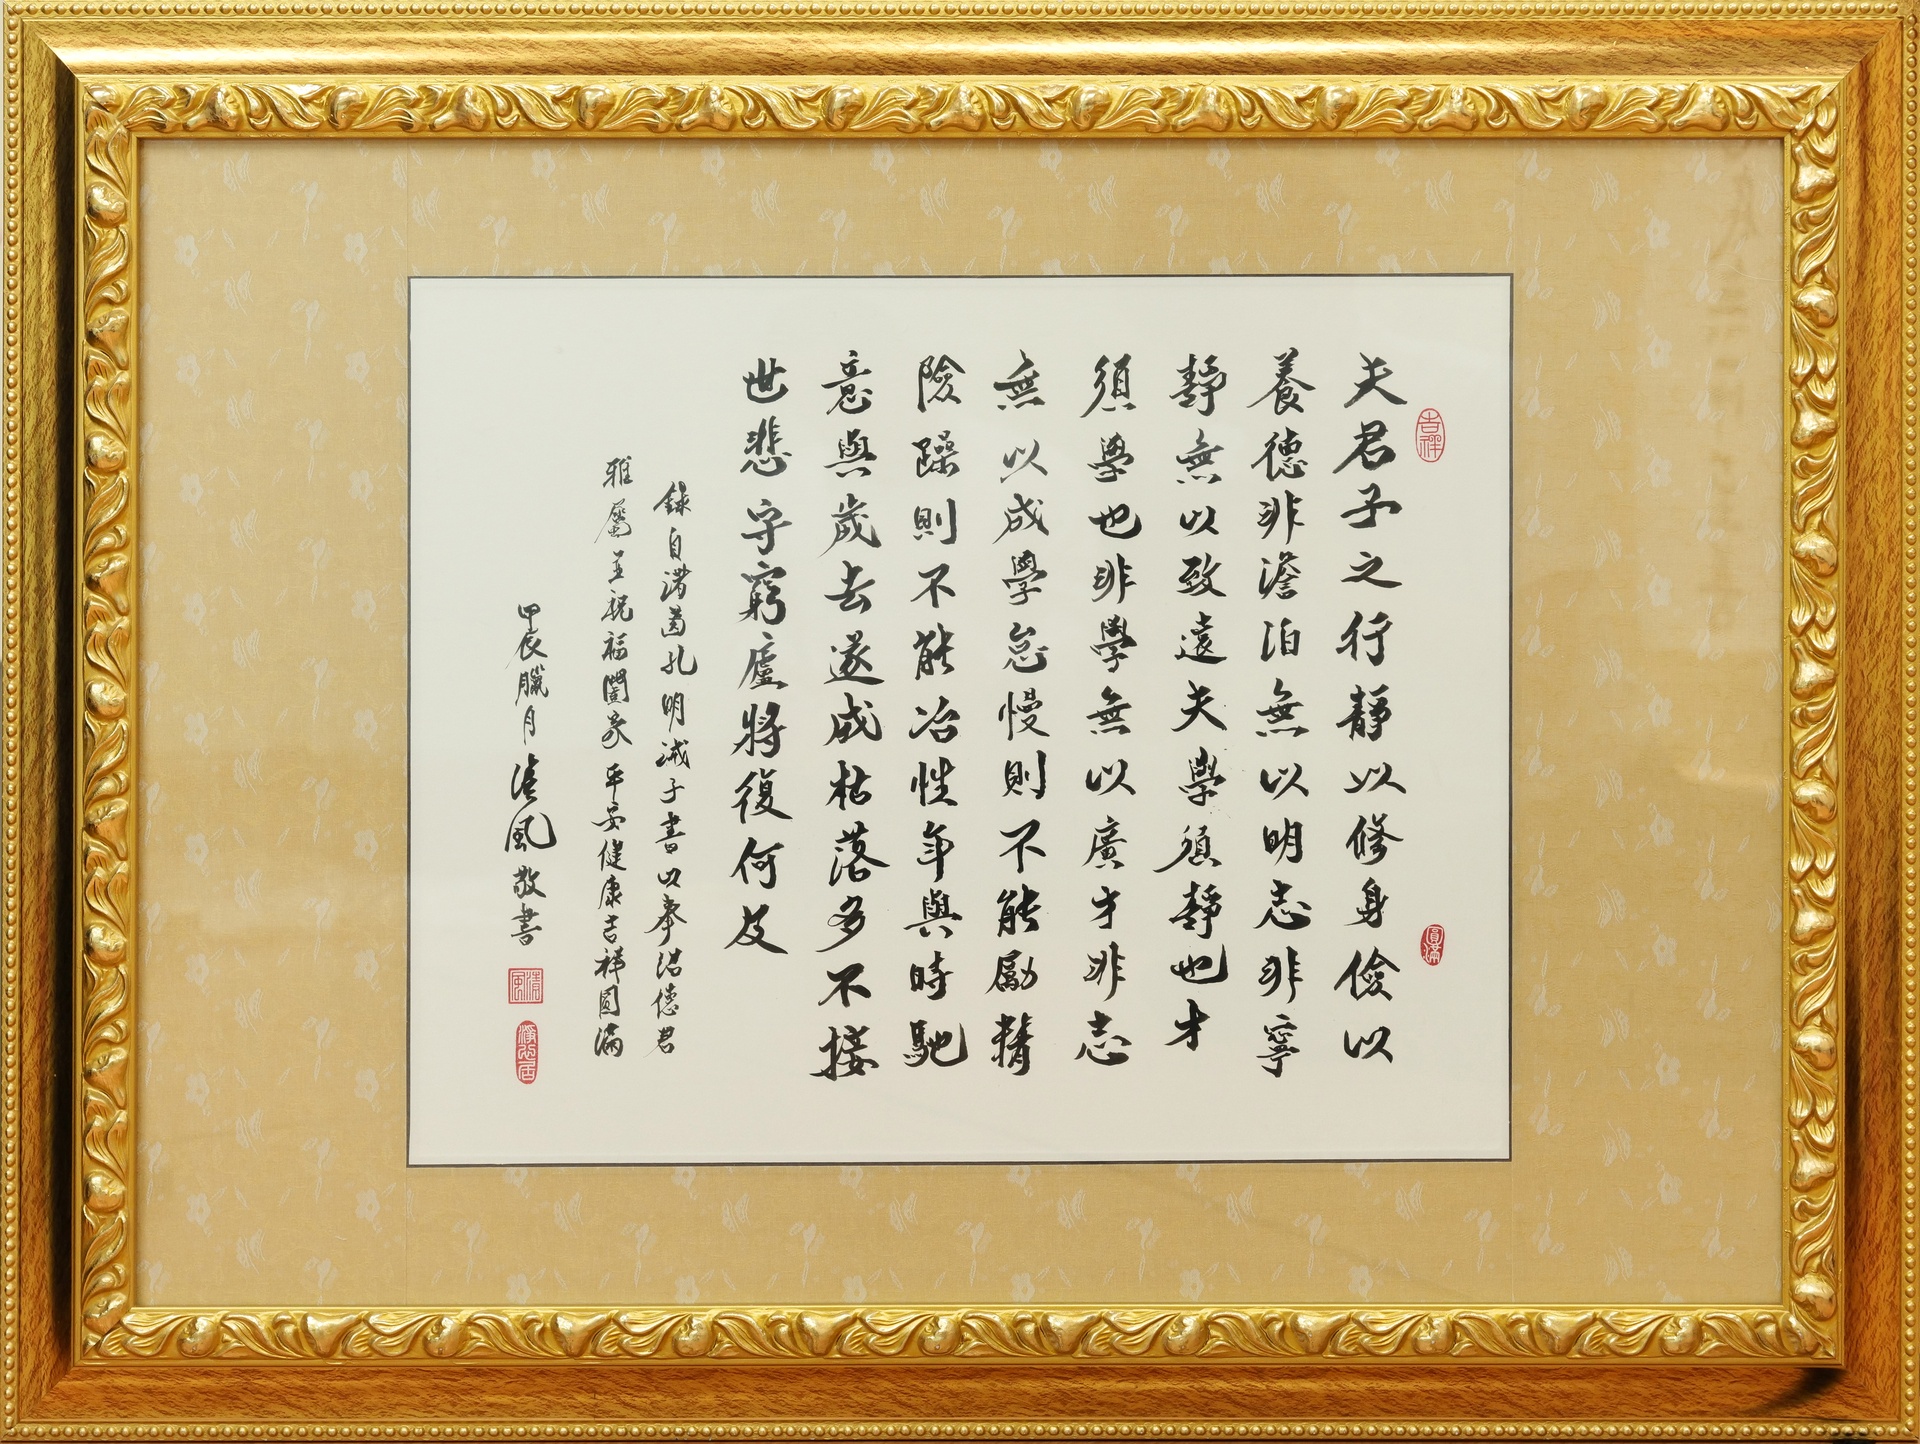 吉祥
圓滿
夫君子之行靜以修身儉以
養德非澹泊無以明志非寧
靜無以致遠夫學須靜也才
須學也非學無以廣才非志
無以成學怠慢則不能勵精
險躁則不能冶性年與時馳
意與歲去遂成枯落多不接
世悲守窮廬將復何及
錄自諸葛孔明誡子書以奉浩德君
雅屬並祝福闔家平安健康吉祥圓滿
甲辰臘月清風敬書
清風